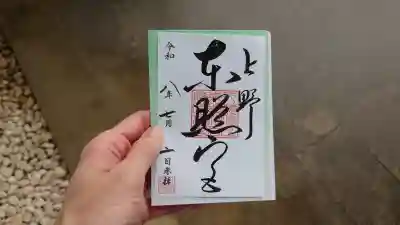 上野
東照宮
令和八年七月二日参拝